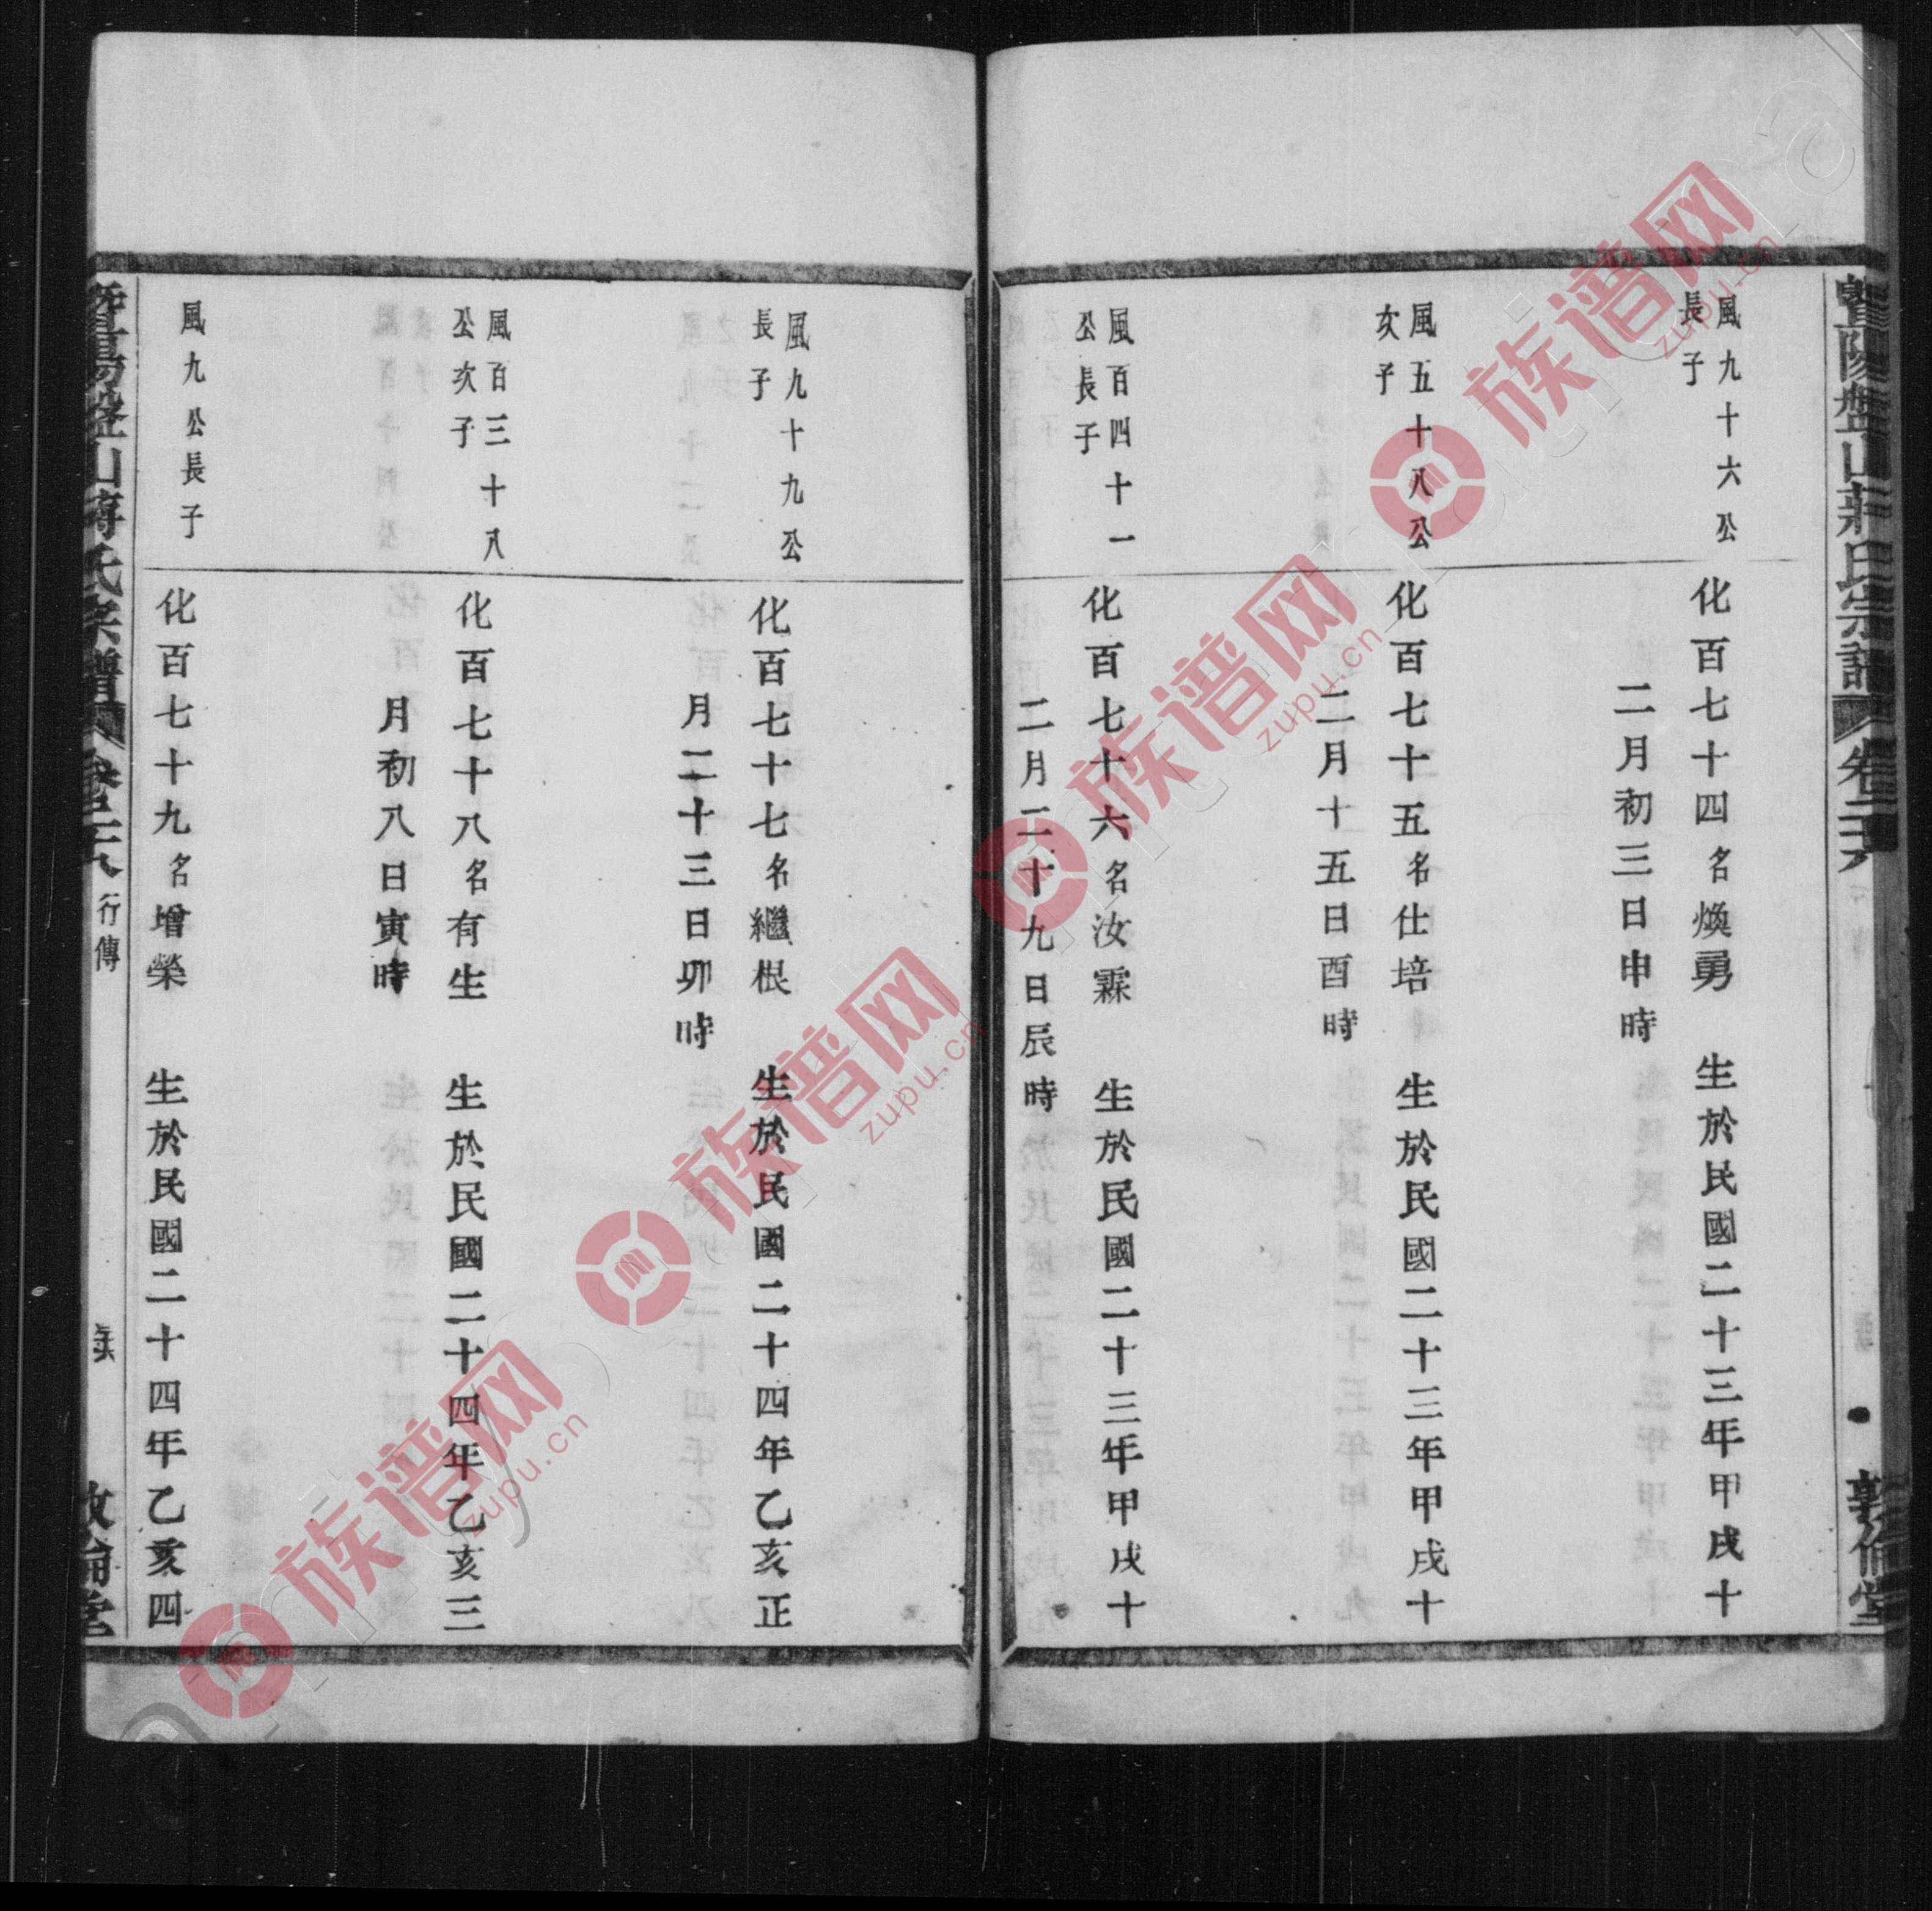 暨陽盤山蔣氏宗譜 卷二十六 敦倫堂
風九十六公
長子
化百七十四名煥勇 生於民國二十三年甲戌十
二月初三日申時
風五十八公
次子
化百七十五名仕培 生於民國二十三年甲戌十
二月十五日酉時
風百四十一
公長子
化百七十六名汝霖 生於民國二十三年甲戌十
二月二十九日辰時
風九十九公
長子
化百七十七名繼根 生於民國二十四年乙亥正
月二十三日卯時
風百三十八
公次子
化百七十八名有生 生於民國二十四年乙亥三
月初八日寅時
風九公長子
化百七十九名增榮 生於民國二十四年乙亥四
暨陽盤山蔣氏宗譜 行傳 敦倫堂
族谱网
zupu.cn
族谱网
zupu.cn
族谱网
zupu.cn
族谱网
zupu.cn